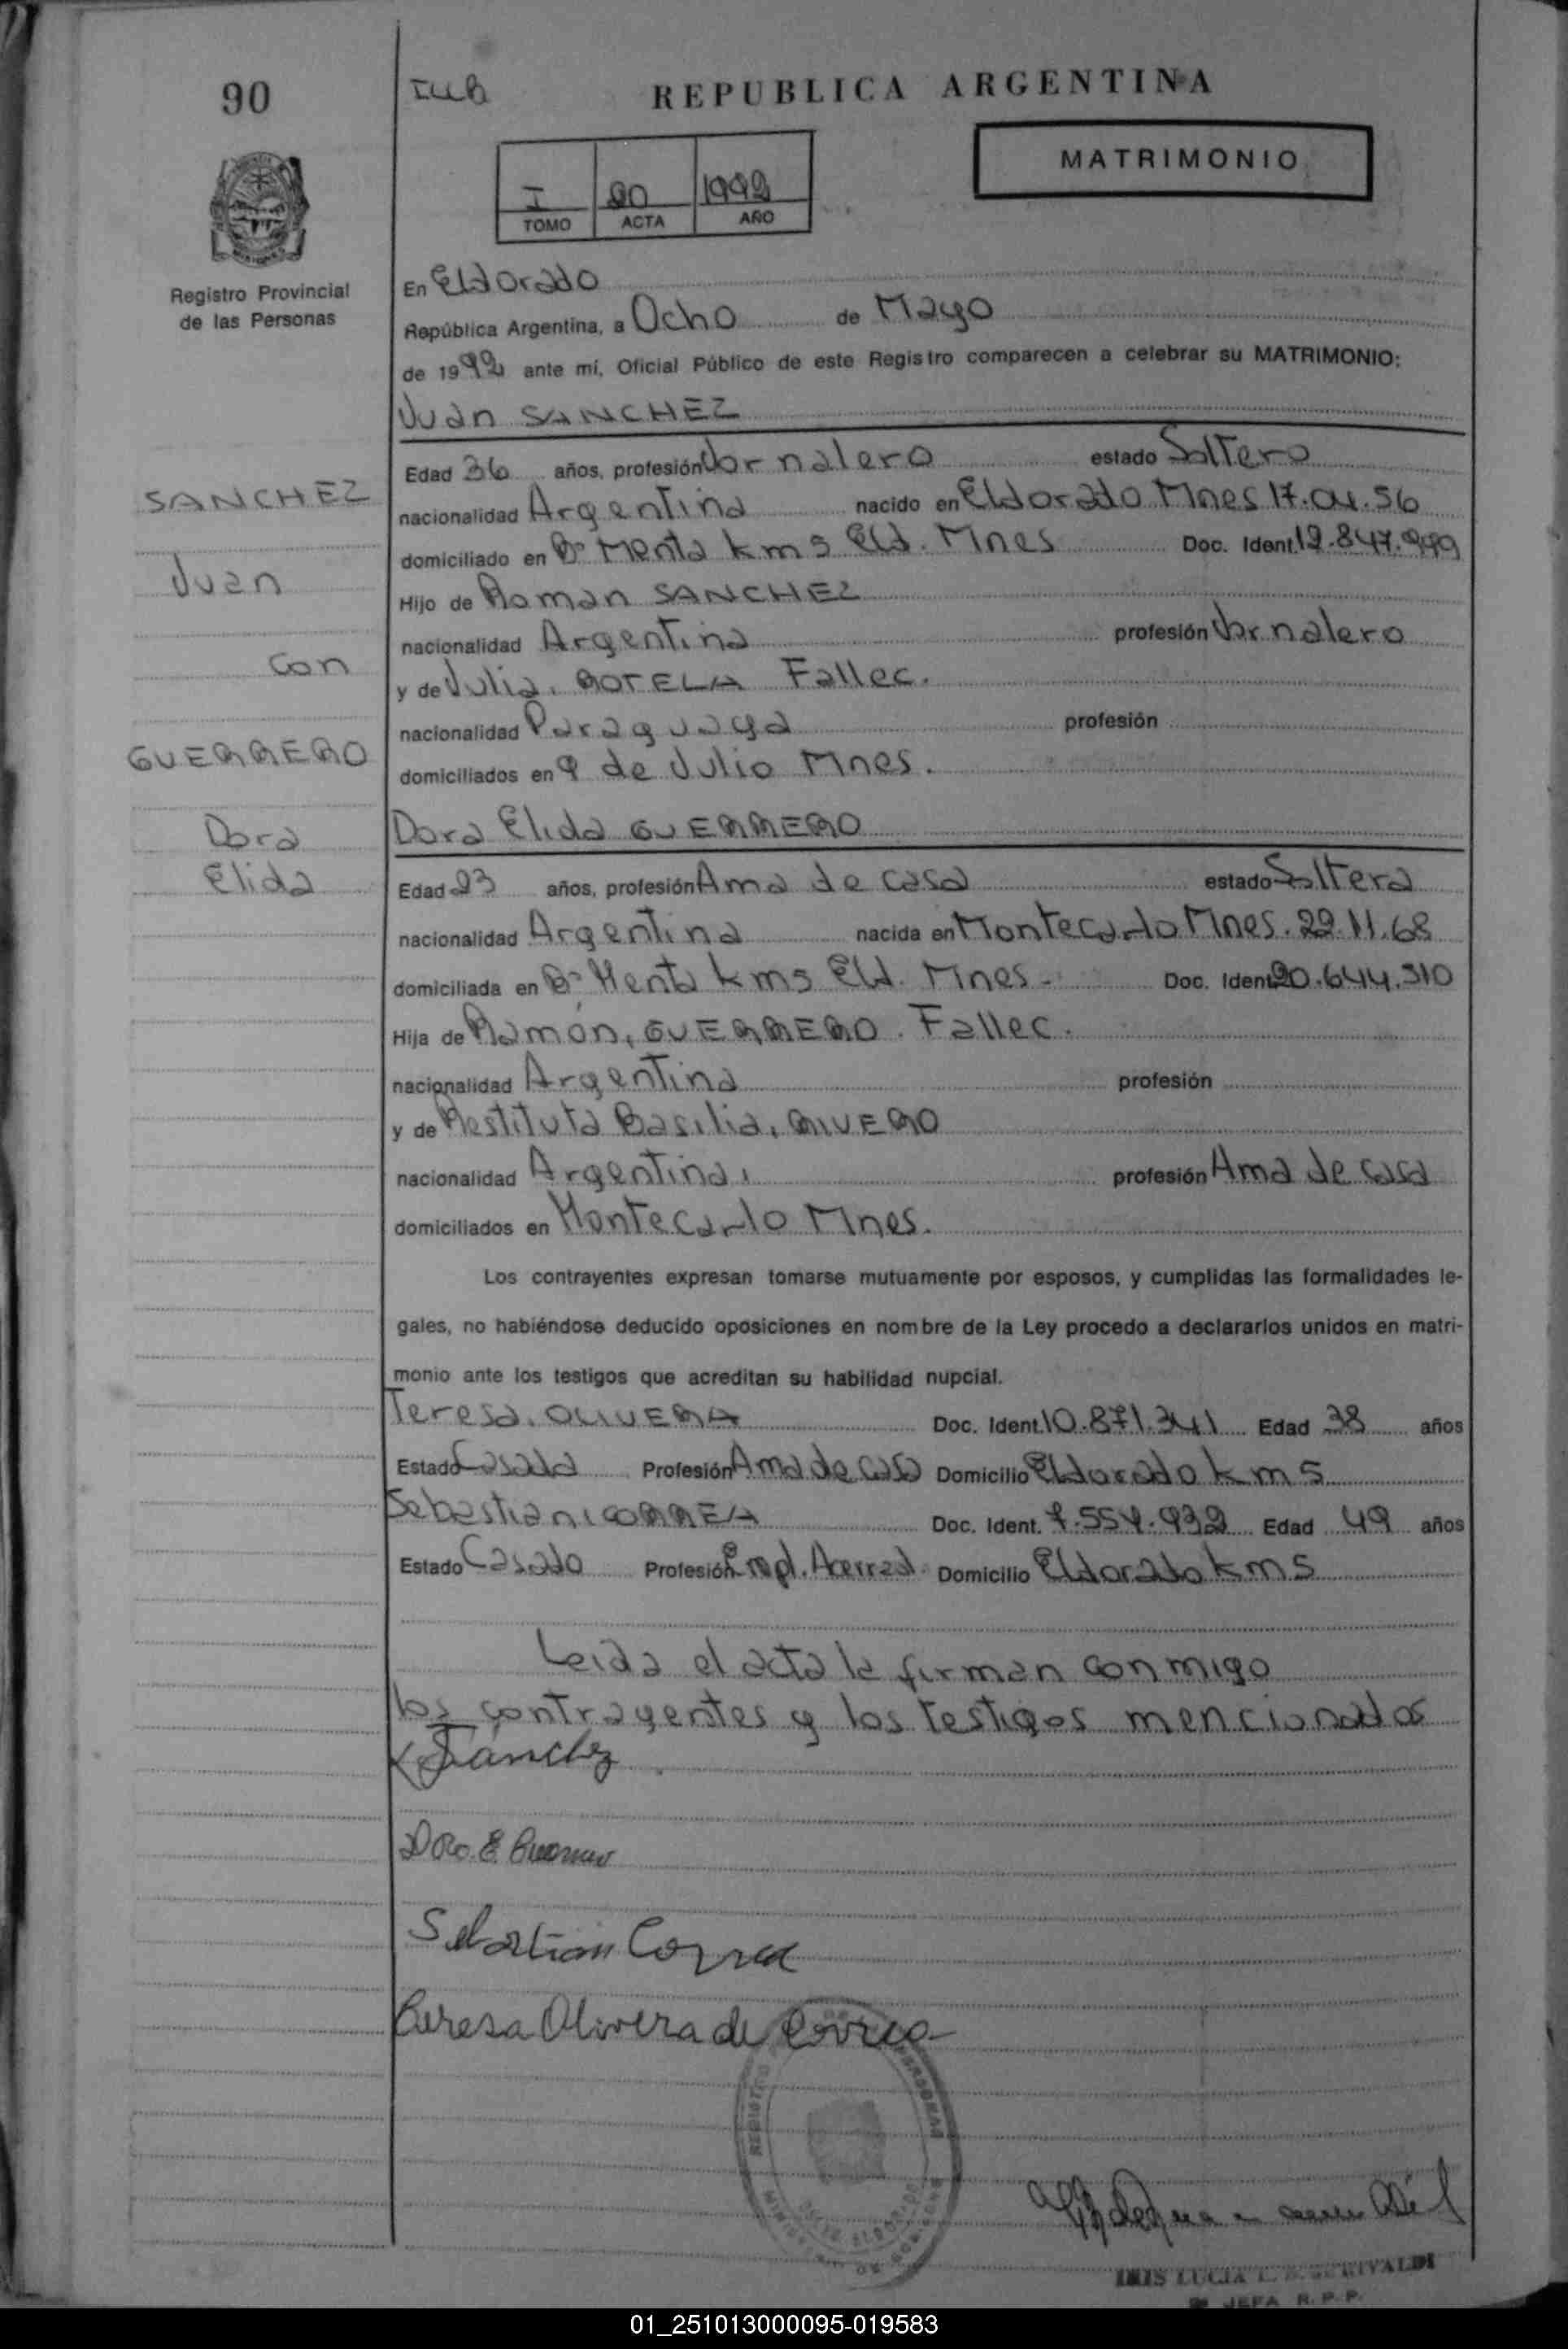 90
REPUBLICA ARGENTINA
MATRIMONIO
I 90 1992
TOMO ACTA AÑO
Registro Provincial
de las Personas
En Eldorado
República Argentina, a Ocho de Mayo
de 1992 ante mí, Oficial Público de este Registro comparecen a celebrar su MATRIMONIO:
Juan SANCHEZ
Edad 36 años, profesión Jornalero estado Soltero
SANCHEZ
nacionalidad Argentina nacido en Eldorado Mnes 17.04.56
domiciliado en B° Menta km 5 Eld. Mnes Doc. Ident. 12.847.999
Juan
Hijo de Roman SANCHEZ
nacionalidad Argentina profesión Jornalero
con
y de Julia, ROTELA Fallec.
nacionalidad Paraguaya profesión
GUERRERO
domiciliados en 9 de Julio Mnes.
Dora
Dora Elida GUERRERO
Elida
Edad 23 años, profesión Ama de casa estado Soltera
nacionalidad Argentina nacida en Montecarlo Mnes. 22.11.68
domiciliada en B° Menta km 5 Eld. Mnes. Doc. Ident. 20.644.310
Hija de Ramón, GUERRERO. Fallec.
nacionalidad Argentina profesión
y de Restituta Basilia, RIVERO
nacionalidad Argentina, profesión Ama de casa
domiciliados en Montecarlo Mnes.
Los contrayentes expresan tomarse mutuamente por esposos, y cumplidas las formalidades le-
gales, no habiéndose deducido oposiciones en nombre de la Ley procedo a declararlos unidos en matri-
monio ante los testigos que acreditan su habilidad nupcial.
Teresa, OLIVERA Doc. Ident. 10.871.341 Edad 38 años
Estado Casada Profesión Ama de casa Domicilio Eldorado km 5
Sebastian, CORREA Doc. Ident. 7.554.932 Edad 49 años
Estado Casado Profesión Empl. Aserrad. Domicilio Eldorado km 5
Leida el acta la firman conmigo
los contrayentes y los testigos mencionados
Sánchez
Dora E Guerrero
Sebastian Correa
Teresa Olivera de Correa
JEFA R.P.P.
01_251013000095-019583